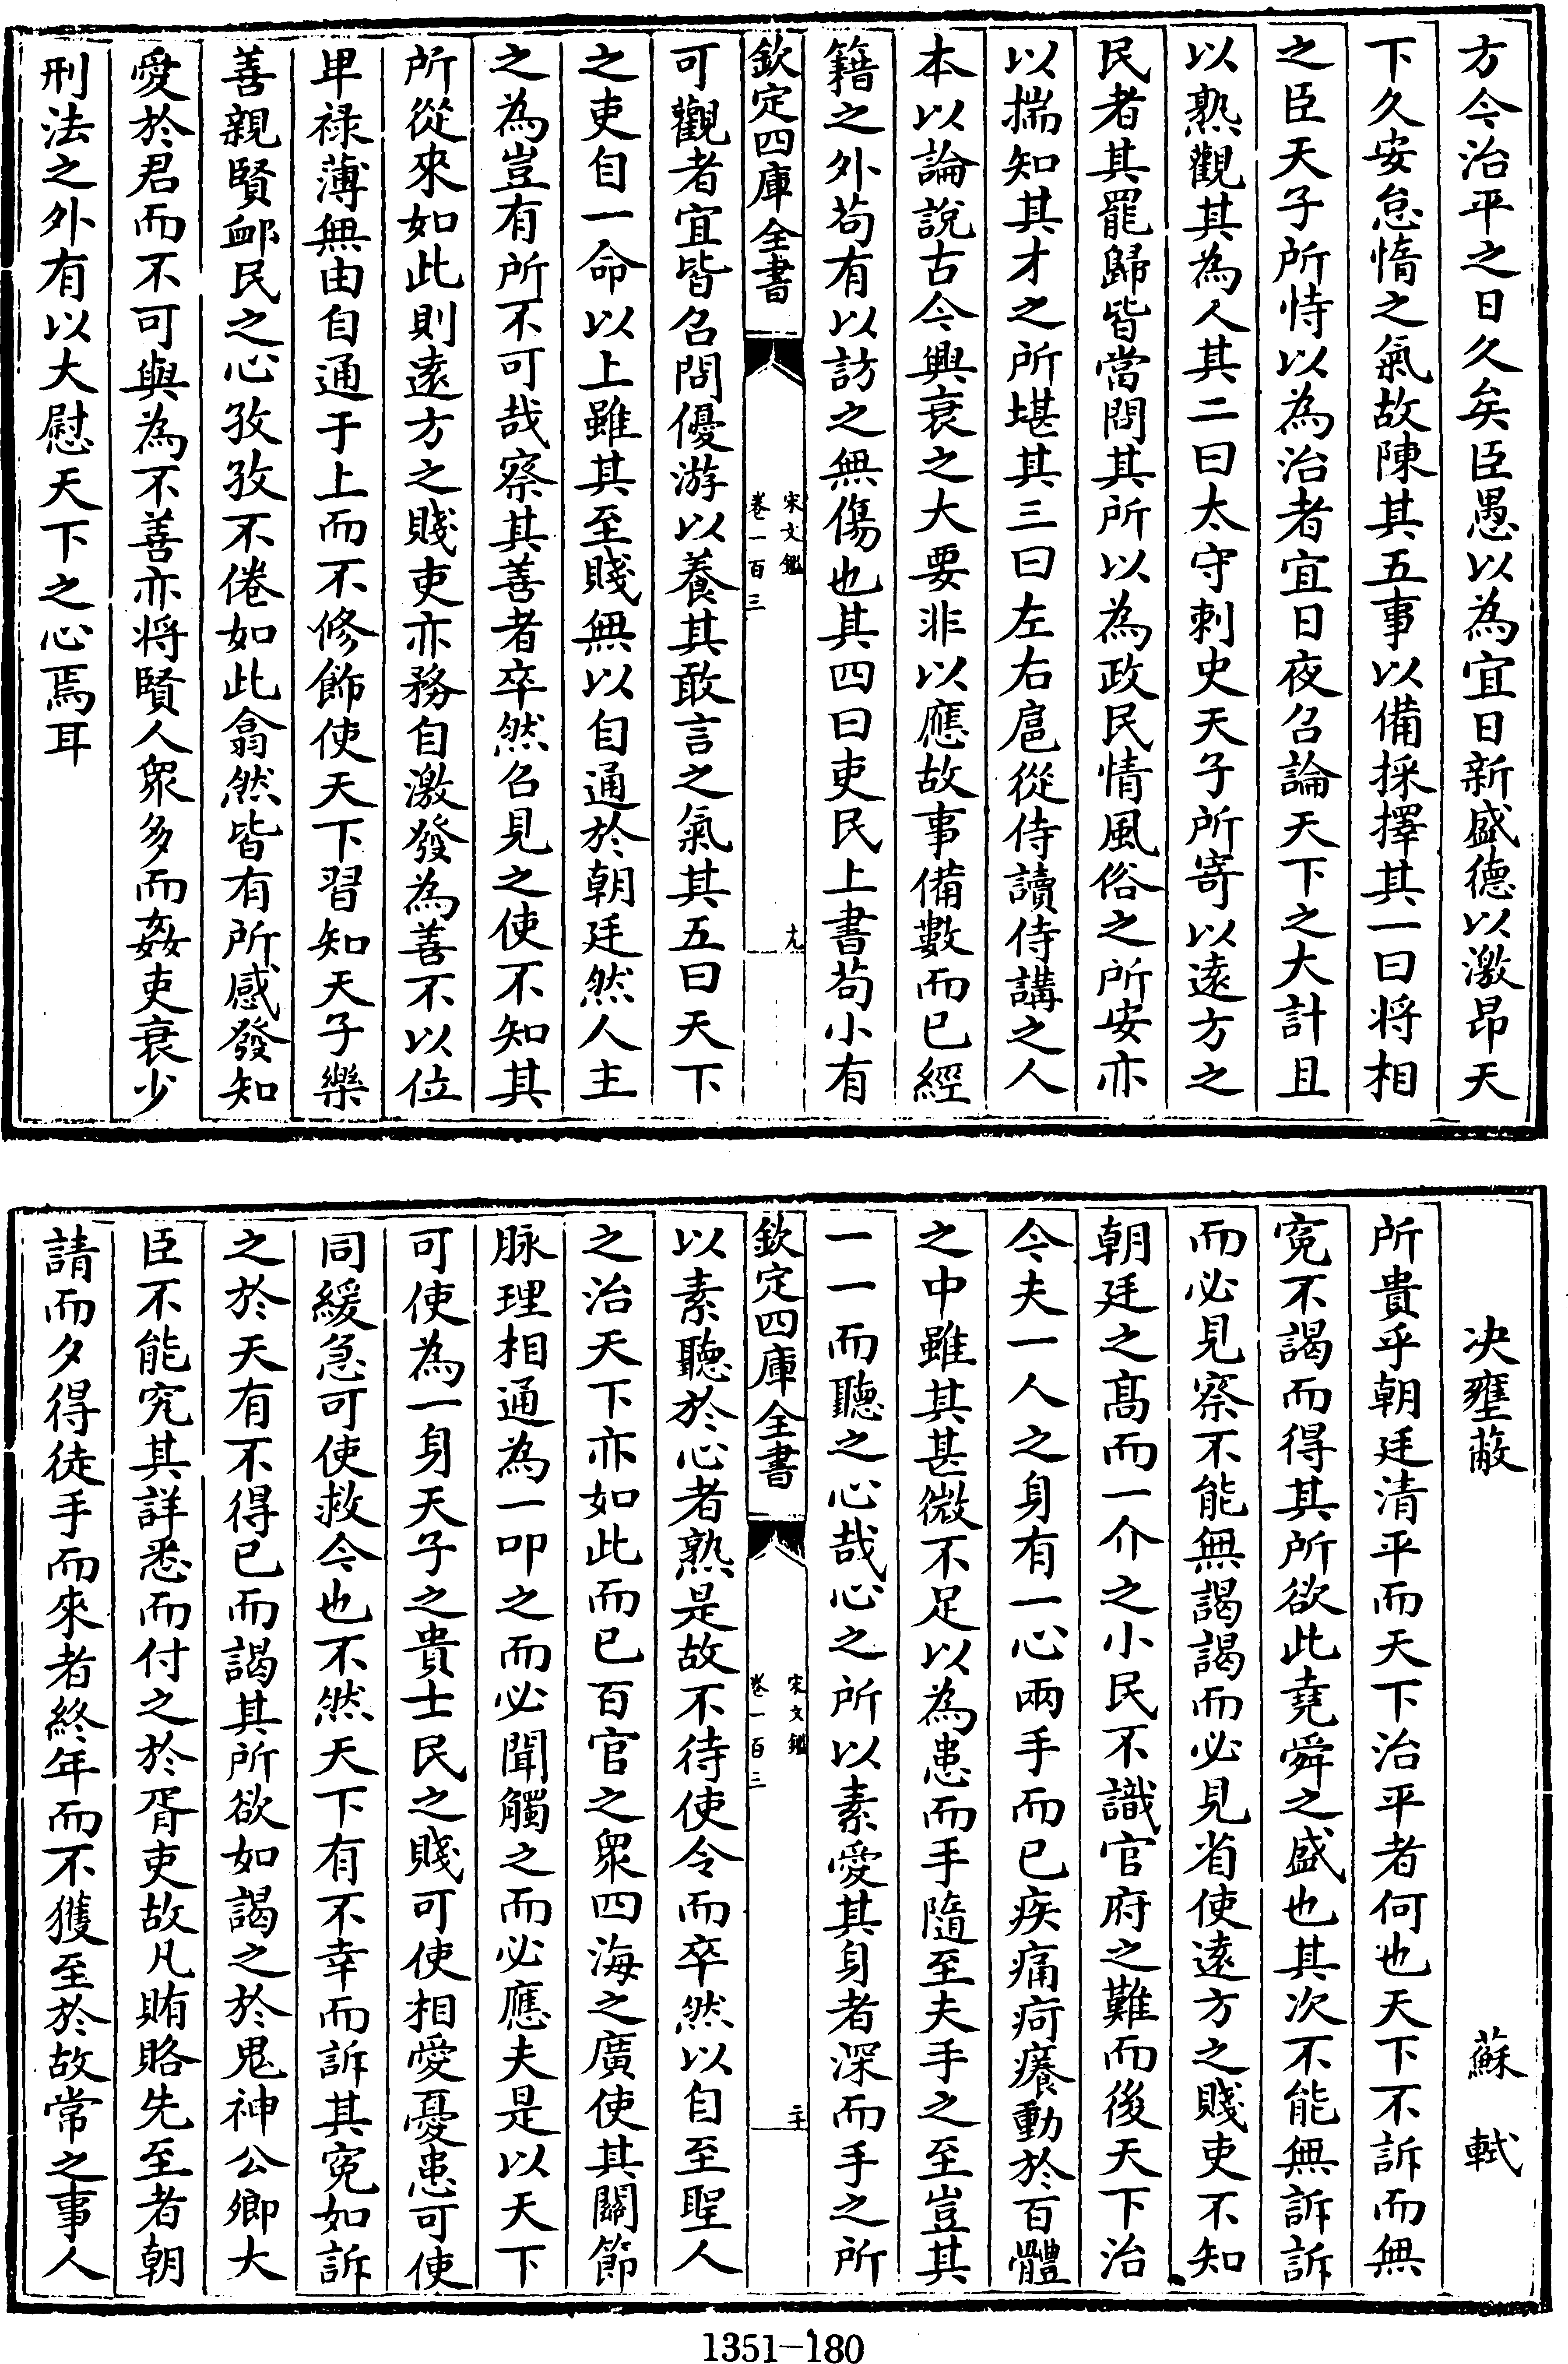 方今治平之日久矣臣愚以為宜日新盛德以激昂天
下久安怠惰之氣故陳其五事以備採擇其一曰將相
之臣天子所恃以為治者宜日夜召論天下之大計且
以熟觀其為人其二曰太守刺史天子所寄以遠方之
民者其罷歸皆當問其所以為政民情風俗之所安亦
以揣知其才之所堪其三曰左右扈從侍讀侍講之人
本以論說古今興衰之大要非以應故事備數而已經
籍之外苟有以訪之無傷也其四曰吏民上書苟小有
欽定四庫全書
宋文鑑
卷一百三
十九
可觀者宜皆召問優游以養其敢言之氣其五曰天下
之吏自一命以上雖其至賤無以自通於朝廷然人主
之為豈有所不可哉察其善者卒然召見之使不知其
所從來如此則遠方之賤吏亦務自激發為善不以位
卑祿薄無由自通于上而不修飾使天下習知天子樂
善親賢䘏民之心孜孜不倦如此翕然皆有所感發知
愛於君而不可與為不善亦將賢人衆多而姦吏衰少
刑法之外有以大慰天下之心焉耳
决壅蔽
蘇軾
所貴乎朝廷清平而天下治平者何也天下不訴而無
寃不謁而得其所欲此堯舜之盛也其次不能無訴訴
而必見察不能無謁謁而必見省使遠方之賤吏不知
朝廷之高而一介之小民不識官府之難而後天下治
今夫一人之身有一心兩手而已疾痛疴癢動於百體
之中雖其甚微不足以為患而手隨至夫手之至豈其
一一而聽之心哉心之所以素愛其身者深而手之所
欽定四庫全書
宋文鑑
卷一百三
二十
以素聽於心者熟是故不待使令而卒然以自至聖人
之治天下亦如此而已百官之衆四海之廣使其關節
脉理相通為一叩之而必聞觸之而必應夫是以天下
可使為一身天子之貴士民之賤可使相愛憂患可使
同緩急可使救今也不然天下有不幸而訴其寃如訴
之於天有不得已而謁其所欲如謁之於鬼神公卿大
臣不能究其詳悉而付之於胥吏故凡賄賂先至者朝
請而夕得徒手而來者終年而不獲至於故常之事人
1351-180